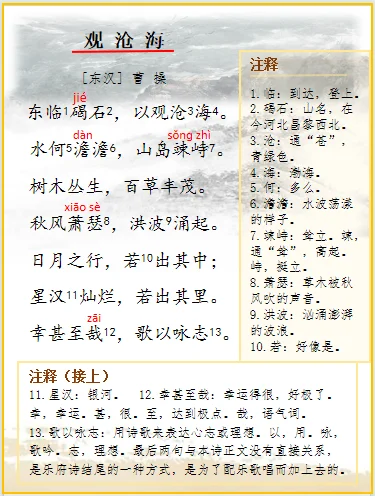 观沧海
[东汉] 曹 操
jié
东临1碣石2，以观沧3海4。
dàn sǒng zhì
水何5澹澹6，山岛竦峙7。
树木丛生，百草丰茂。
xiāo sè
秋风萧瑟8，洪波9涌起。
日月之行，若10出其中；
星汉11灿烂，若出其里。
zāi
幸甚至哉12，歌以咏志13。
注释
1. 临：到达，登上。
2. 碣石：山名，在
今河北昌黎西北。
3. 沧：通“苍”，
青绿色。
4. 海：渤海。
5. 何：多么。
6. 澹澹：水波荡漾
的样子。
7. 竦峙：耸立。竦，
通“耸”，高起。
峙，挺立。
8. 萧瑟：草木被秋
风吹的声音。
9. 洪波：汹涌澎湃
的波浪。
10. 若：好像是。
注释（接上）
11. 星汉：银河。 12. 幸甚至哉：幸运得很，好极了。
幸，幸运。甚，很。至，达到极点。哉，语气词。
13. 歌以咏志：用诗歌来表达心志或理想。以，用。咏，
歌吟。志，理想。最后两句与本诗正文没有直接关系，
是乐府诗结尾的一种方式，是为了配乐歌唱而加上去的。